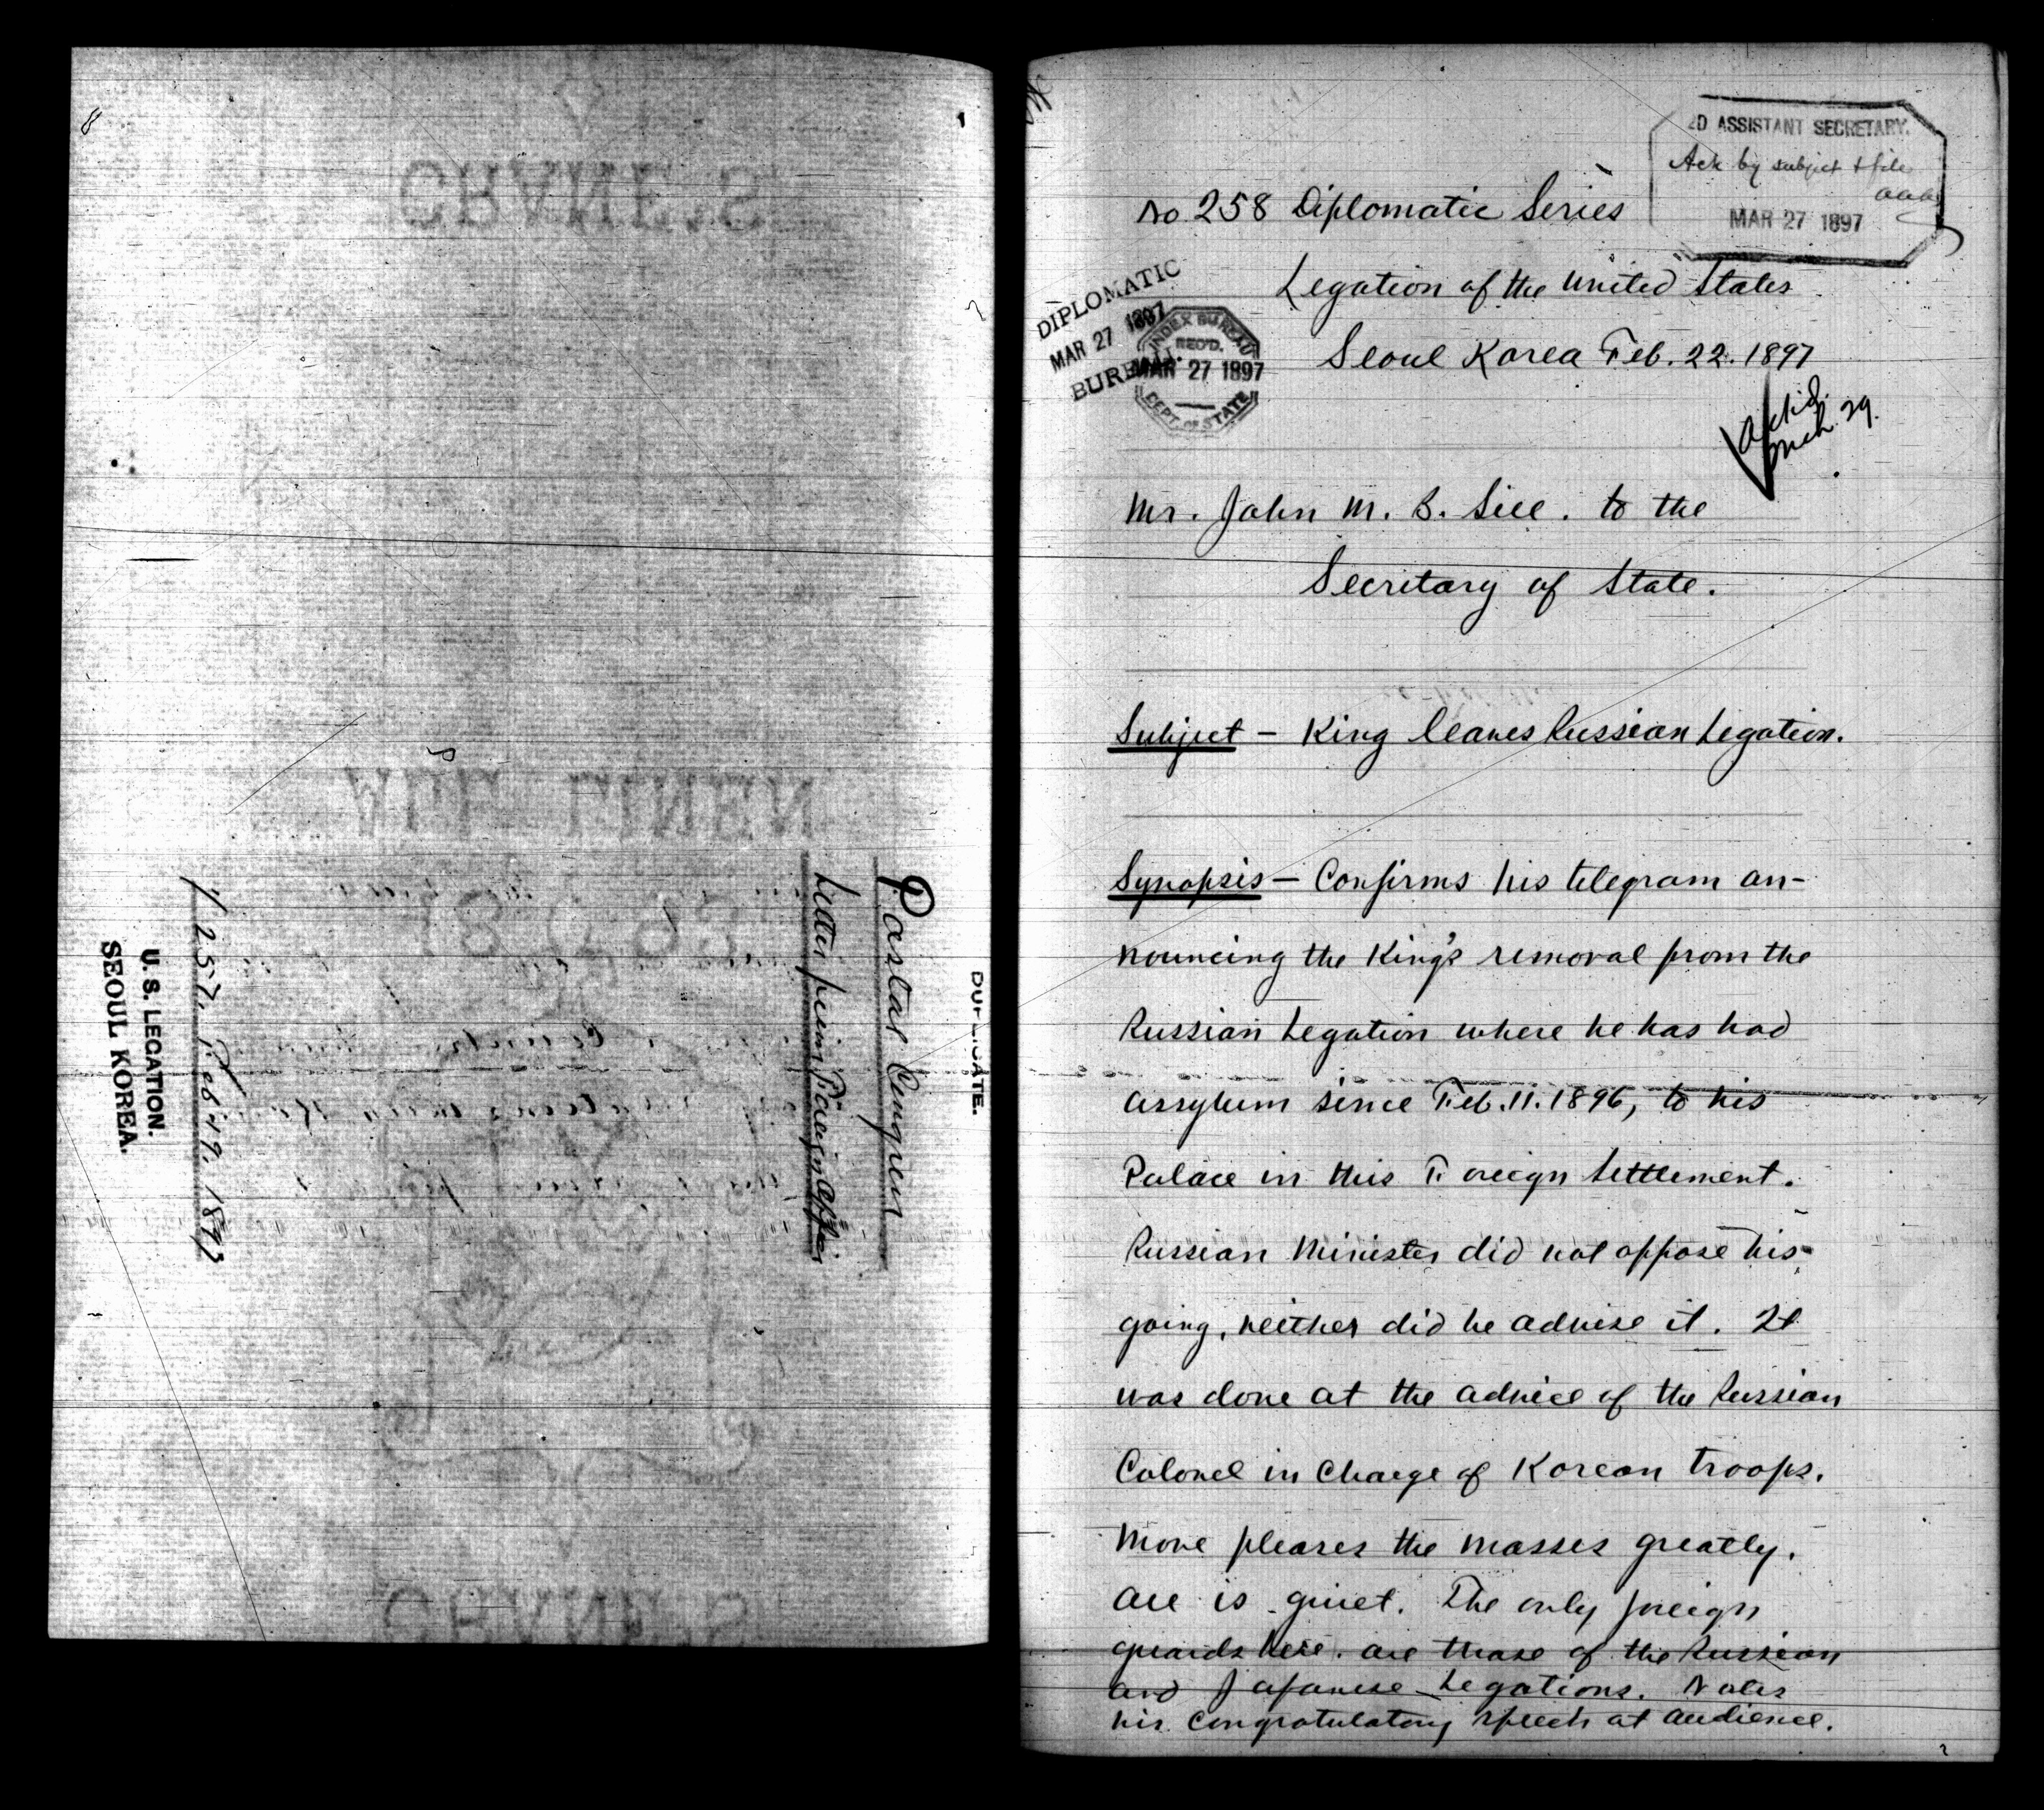 CRANE'S
ALL LINEN
DUPLICATE.
Postal Congress
Letter from Foreign Office
257. Feb 19. 1897
U. S. LEGATION.
SEOUL KOREA.
2D ASSISTANT SECRETARY.
Ack by subject & file
aaa
MAR 27 1897
No 258 Diplomatic Series
Legation of the United States
Seoul Korea Feb. 22. 1897
DIPLOMATIC
MAR 27 1897
BUREAU.
INDEX BUREAU
REC'D.
MAR 27 1897
DEPT. OF STATE
Ack'd.
Mch 29.
Mr. John M. B. Sill. to the
Secretary of State.
Subject – King leaves Russian Legation.
Synopsis – Confirms his telegram an-
nouncing the King's removal from the
Russian Legation where he has had
assylum since Feb. 11. 1896, to his
Palace in this Foreign Settlement.
Russian Minister did not oppose his
going, neither did he advise it. It
was done at the advice of the Russian
Colonel in charge of Korean troops.
Move pleases the masses greatly.
All is quiet. The only foreign
guards here. are those of the Russian
and Japanese Legations. Notes
his congratulatory speech at audience.
CRANE'S